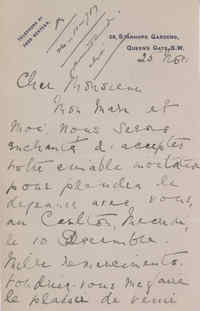 28, STANHOPE GARDENS,
QUEENS GATE, S.W.
25 Nov.
Cher Monsieur
Mon Mari et
Moi, nous serons
enchantés d'accepter
votre aimable invitation
pour prendre le
déjeuner avec vous
au Carlton, Mercredi,
le 10 Décembre.
Mille remerciments.
Voudriez-vous me faire
le plaisir de venir